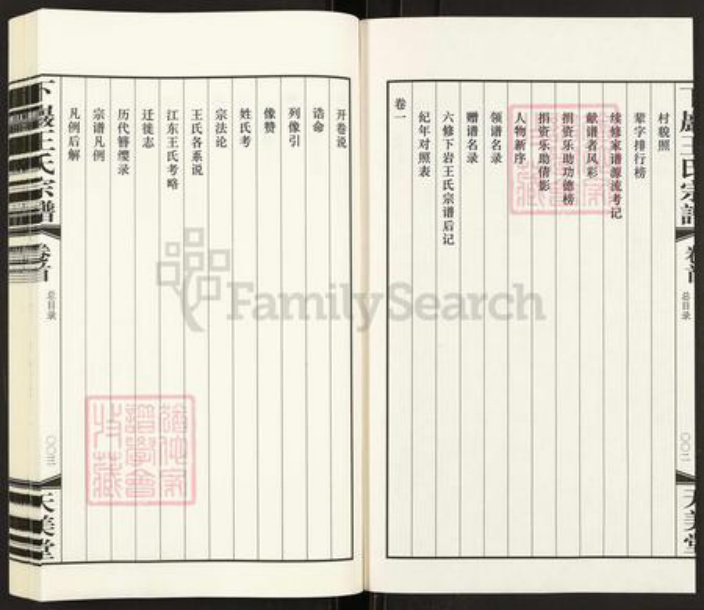 村貌照
辈字排行榜
续修家谱源流考记
献谱者风彩
捐资乐助功德榜
捐资乐助倩影
人物新序
领谱名录
赠谱名录
六修下岩王氏宗谱后记
纪年对照表
卷一
下巖王氏宗譜
卷首
总目录
〇〇二
天美堂
开卷说
诰命
列像引
像赞
姓氏考
宗法论
王氏各系说
江东王氏考略
迁徙志
历代簪缨录
宗谱凡例
凡例后解
下巖王氏宗譜
卷首
总目录
〇〇三
天美堂
FamilySearch